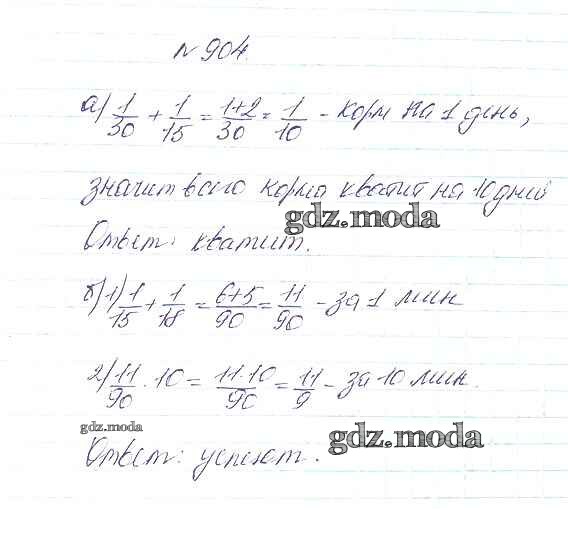 № 904.
а) 1/30 + 1/15 = 1+2/30 = 1/10 - корм на 1 день,
значит всего корма хватит на 10 дней
gdz.moda
Ответ: хватит.
б) 1) 1/15 + 1/18 = 6+5/90 = 11/90 - за 1 мин
2) 11/90 · 10 = 11·10/90 = 11/9 - за 10 мин.
gdz.moda
gdz.moda
Ответ: успеют.